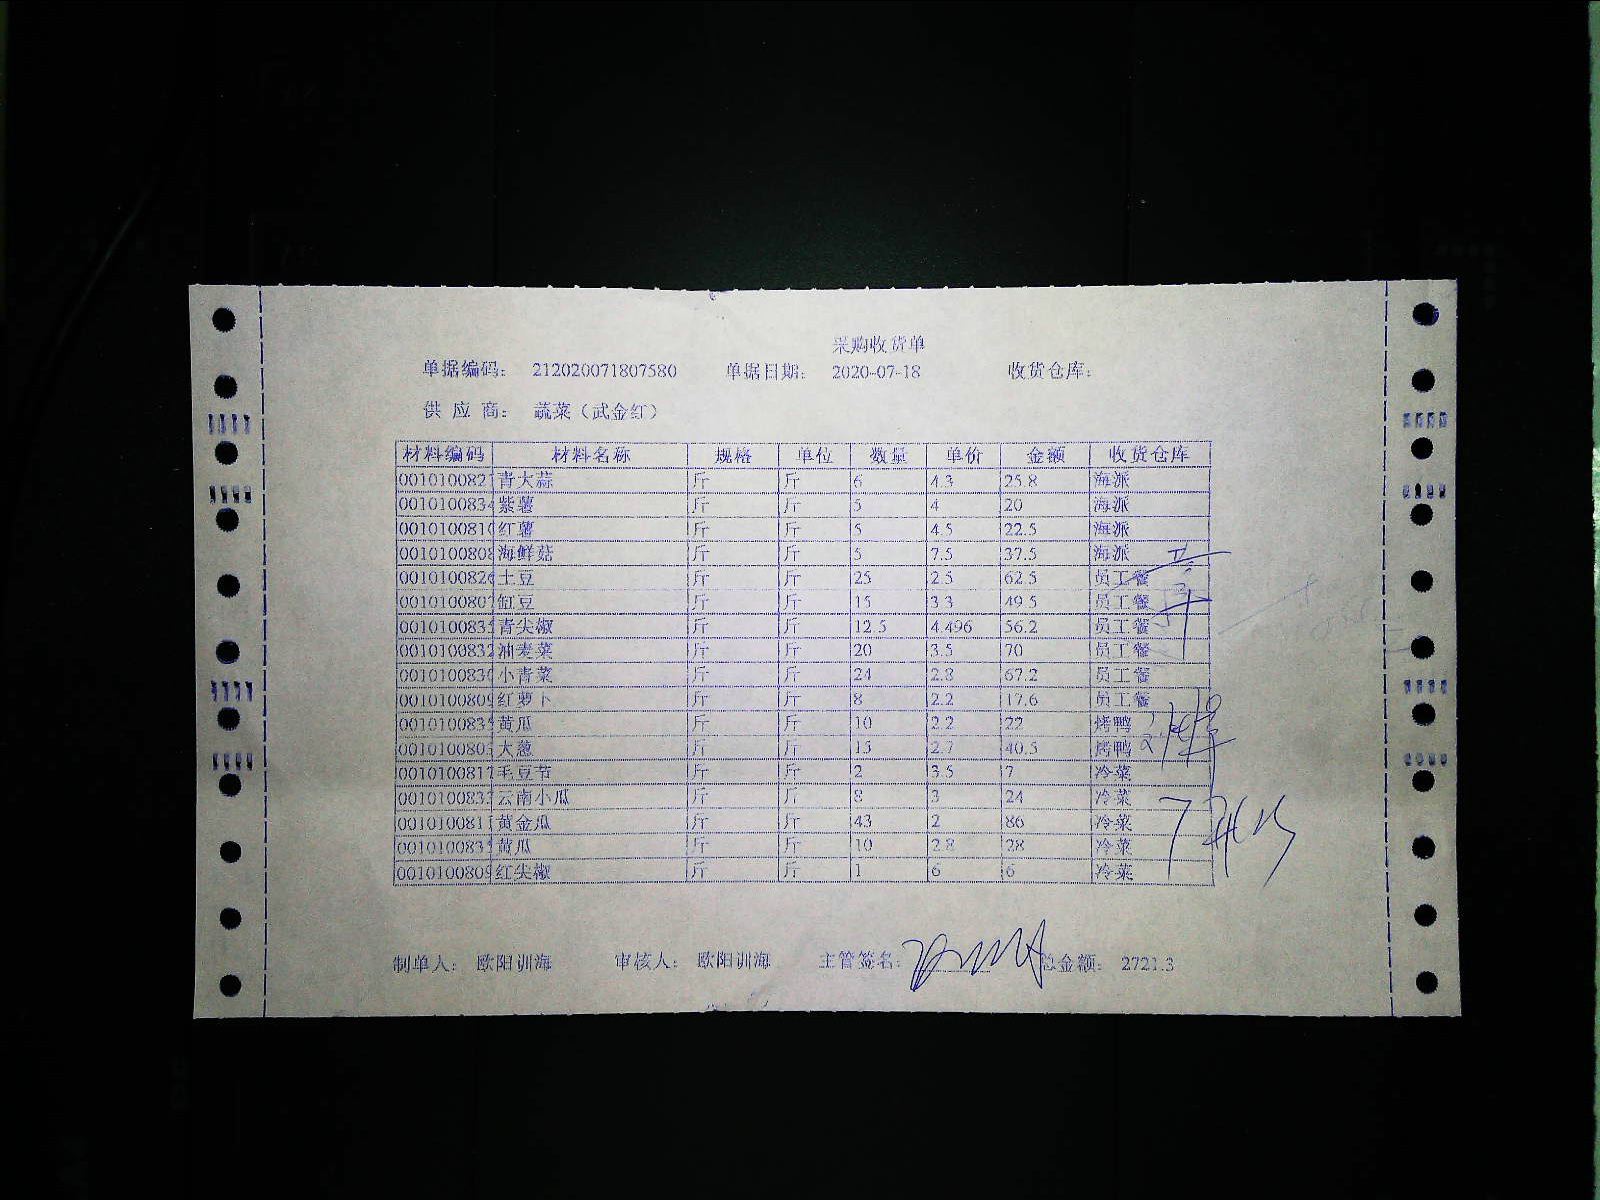 采购收货单
单据编码: 212020071807580 单据日期: 2020-07-18 收货仓库:
供 应 商: 蔬菜（武金红）
材料编码 材料名称 规格 单位 数量 单价 金额 收货仓库
001010082 青大蒜 斤 斤 6 4.3 25.8 海派
001010083 紫薯 斤 斤 5 4 20 海派
001010081 红薯 斤 斤 5 4.5 22.5 海派
001010080 海鲜菇 斤 斤 5 7.5 37.5 海派
001010082 土豆 斤 斤 25 2.5 62.5 员工餐
001010080 缸豆 斤 斤 15 3.3 49.5 员工餐
001010083 青尖椒 斤 斤 12.5 4.496 56.2 员工餐
001010083 油麦菜 斤 斤 20 3.5 70 员工餐
001010083 小青菜 斤 斤 24 2.8 67.2 员工餐
001010080 红萝卜 斤 斤 8 2.2 17.6 员工餐
001010083 黄瓜 斤 斤 10 2.2 22 烤鸭
001010080 大葱 斤 斤 15 2.7 40.5 烤鸭
001010081 毛豆节 斤 斤 2 3.5 7 冷菜
001010083 云南小瓜 斤 斤 8 3 24 冷菜
001010081 黄金瓜 斤 斤 43 2 86 冷菜
001010083 黄瓜 斤 斤 10 2.8 28 冷菜
001010080 红尖椒 斤 斤 1 6 6 冷菜
制单人: 欧阳训海 审核人: 欧阳训海 主管签名: 总金额: 2721.3